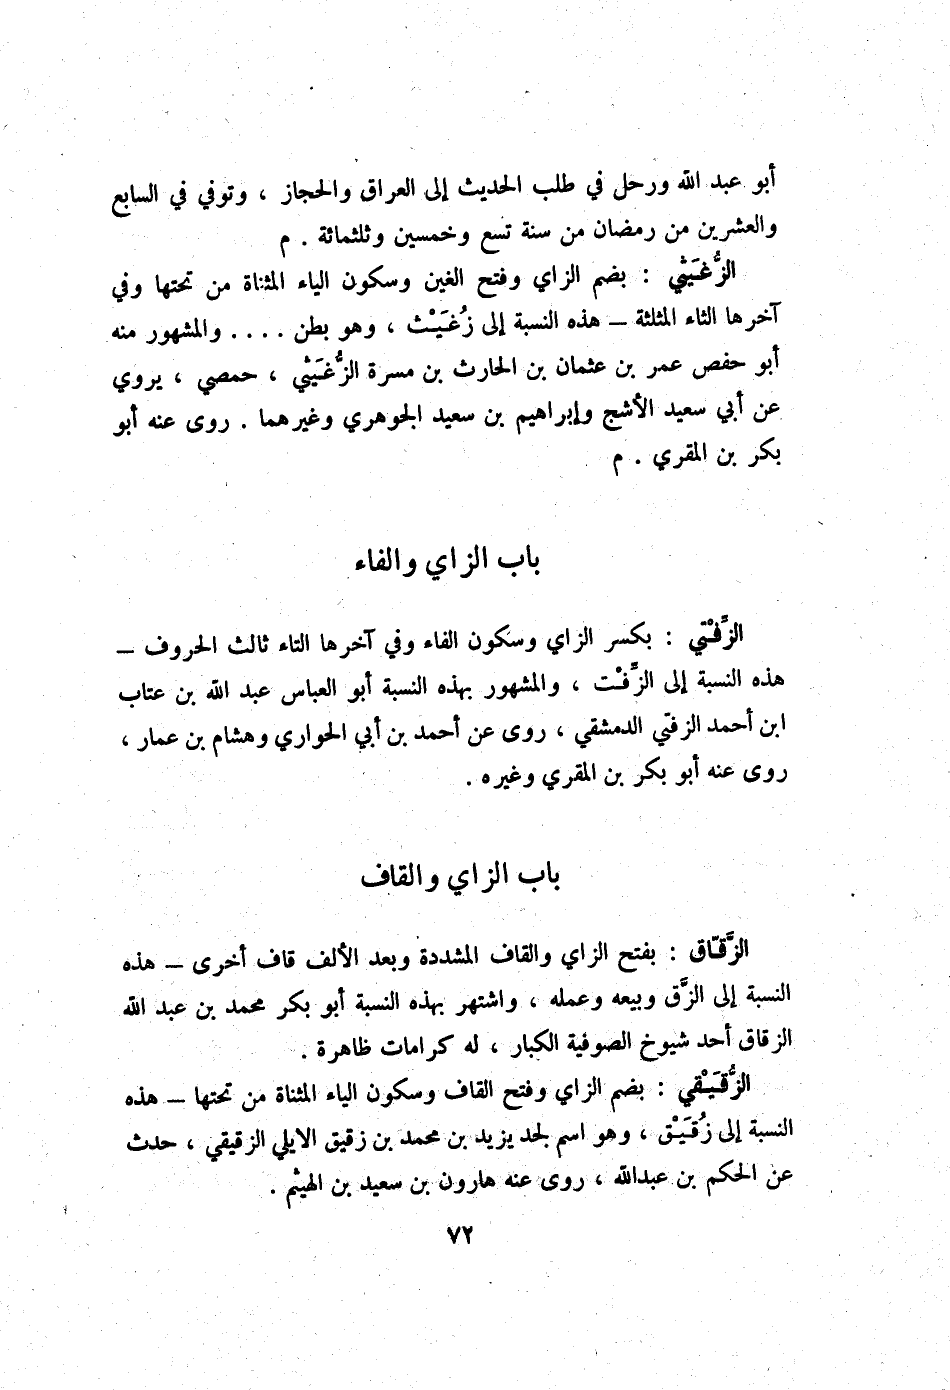 أبو عبد الله ورحل في طلب الحديث إلى العراق والحجاز ، وتوفي في السابع
والعشرين من رمضان من سنة تسع وخمسين وثلثمائة . م
الزُّغَيْثي : بضم الزاي وفتح الغين وسكون الياء المثناة من تحتها وفي
آخرها الثاء المثلثة – هذه النسبة إلى زُغَيْث ، وهو بطن .... والمشهور منه
أبو حفص عمر بن عثمان بن الحارث بن مسرة الزُّغَيْثي ، حمصي ، يروي
عن أبي سعيد الأشج وإبراهيم بن سعيد الجوهري وغيرهما . روى عنه أبو
بكر بن المقري . م
باب الزاي والفاء
الزَّفْتي : بكسر الزاي وسكون الفاء وفي آخرها التاء ثالث الحروف –
هذه النسبة إلى الزَّفْت ، والمشهور بهذه النسبة أبو العباس عبد الله بن عتاب
ابن أحمد الزفتي الدمشقي ، روى عن أحمد بن أبي الحواري وهشام بن عمار ،
روى عنه أبو بكر بن المقري وغيره .
باب الزاي والقاف
الزَّقَّاق : بفتح الزاي والقاف المشددة وبعد الألف قاف أخرى – هذه
النسبة إلى الزَّق وبيعه وعمله ، واشتهر بهذه النسبة أبو بكر محمد بن عبد الله
الزقاق أحد شيوخ الصوفية الكبار ، له كرامات ظاهرة .
الزُّقَيْقي : بضم الزاي وفتح القاف وسكون الياء المثناة من تحتها – هذه
النسبة إلى زُقَيْق ، وهو اسم لجد يزيد بن محمد بن زقيق الايلي الزقيقي ، حدث
عن الحكم بن عبدالله ، روى عنه هارون بن سعيد بن الهيثم .
٧٢